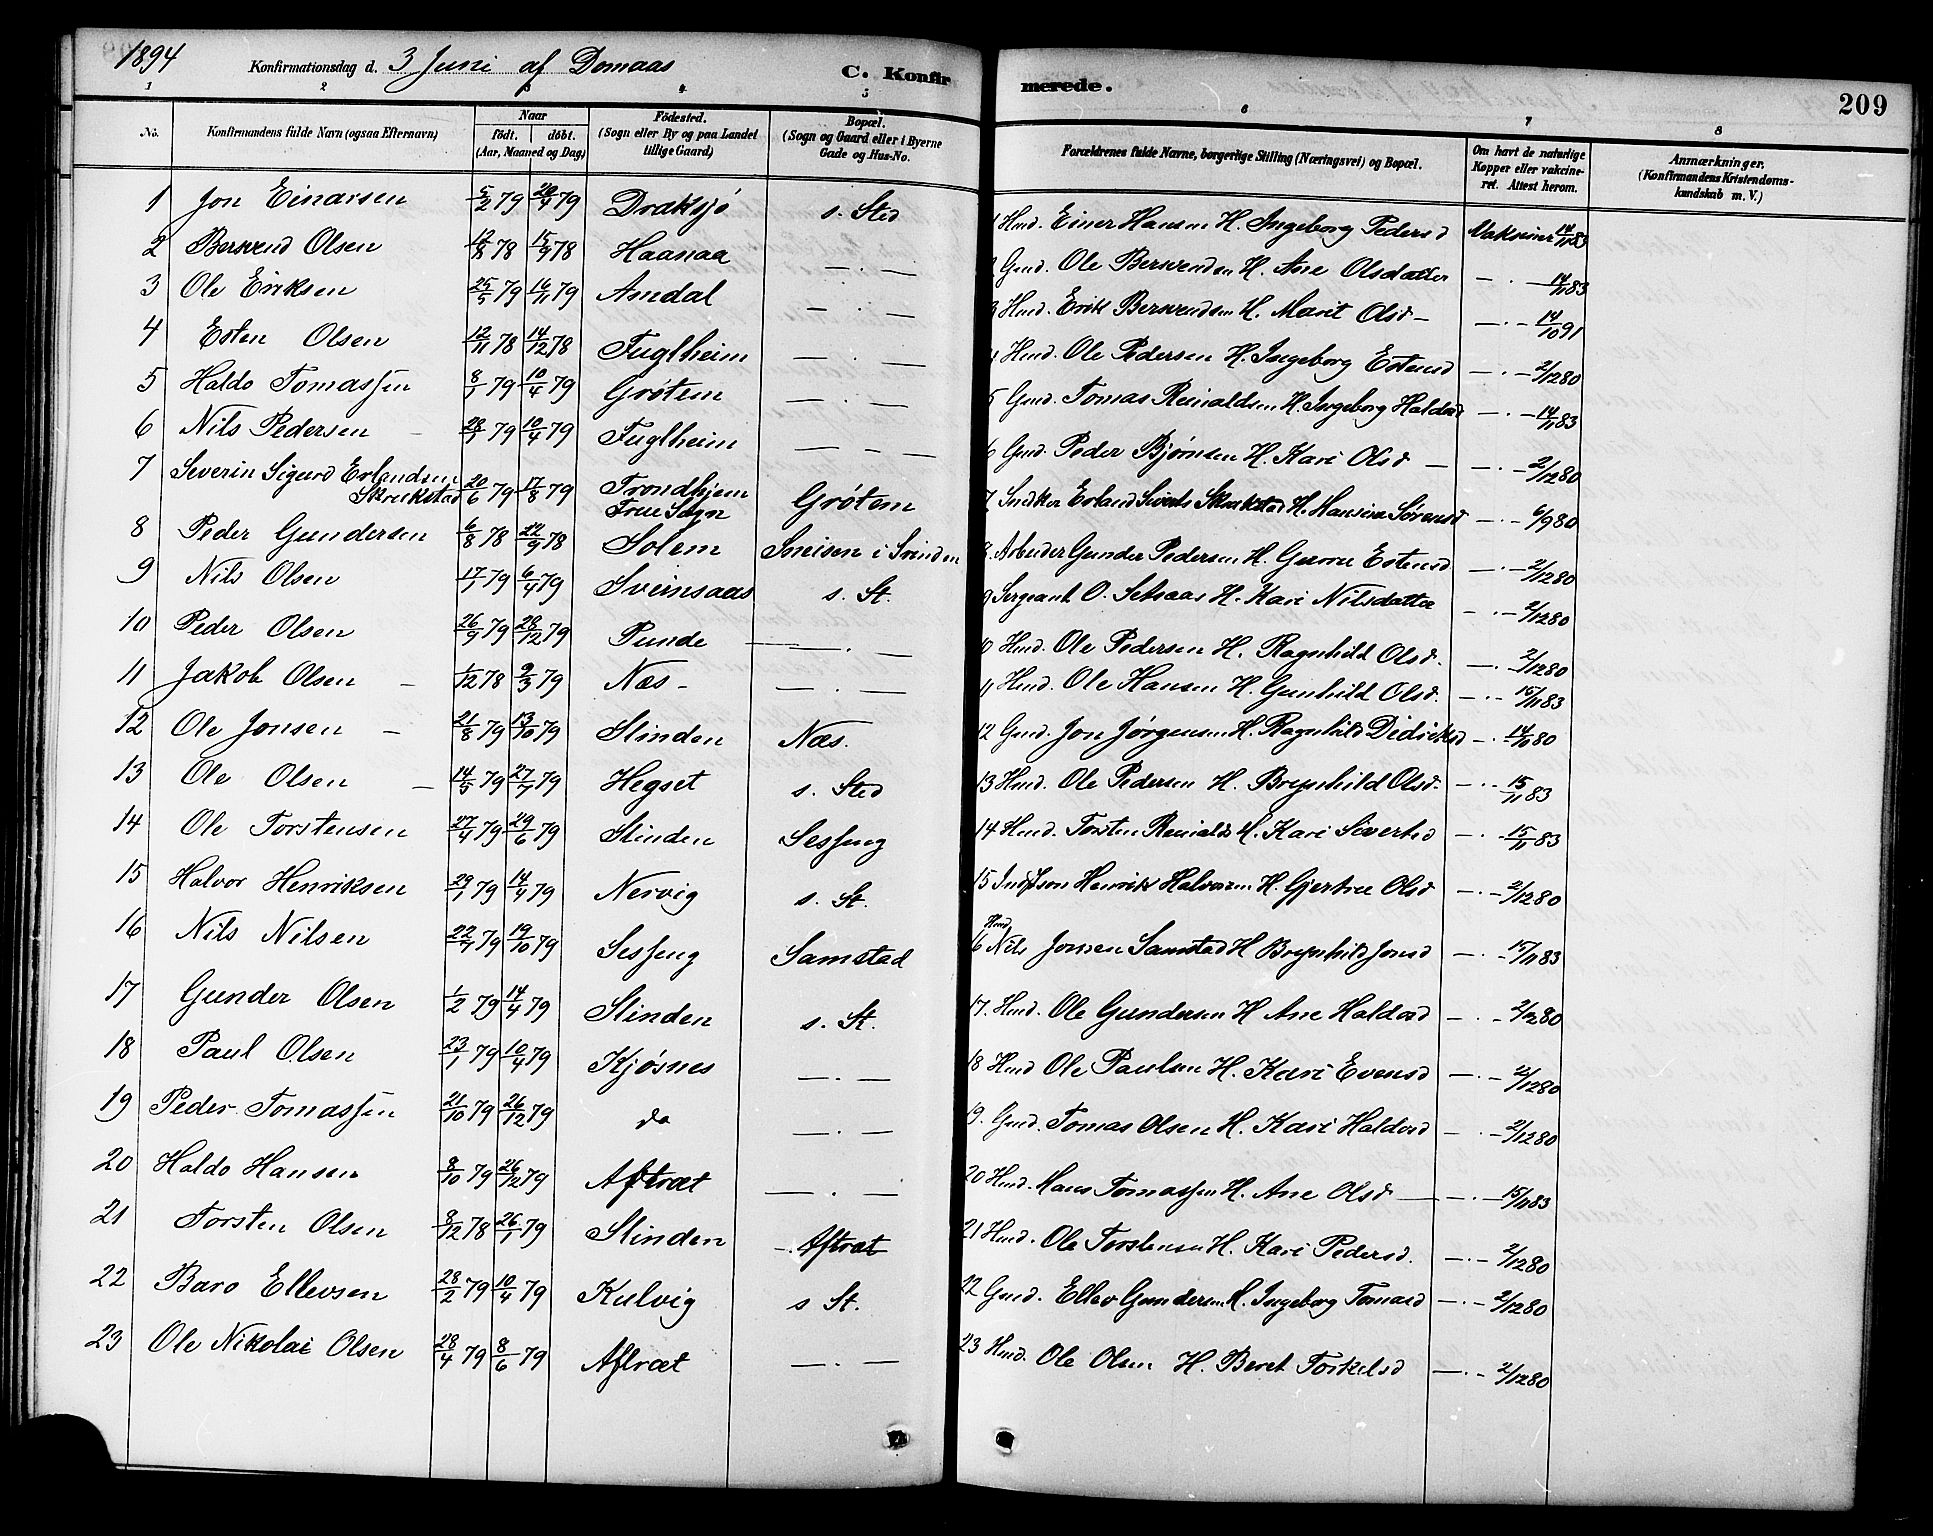 1894 Konfirmationsdag d. 3 Juni af Domaas C. Konfirmerede. 209
1 2 3 4 5 6 7 8
No. Konfirmandens fulde Navn (ogsaa Efternavn) Naar født. døbt. (Aar, Maaned og Dag) Fødested. (Sogn eller By og paa Landet tillige Gaard) Bopæl. (Sogn og Gaard eller i Byerne Gade og Hus-No. Forældrenes fulde Navne, borgerlige Stilling (Næringsvei) og Bopæl. Om havt de naturlige Kopper eller vakcineret. Attest herom. Anmærkninger. (Konfirmandens Kristendomskundskab m. V.)
1 Jon Einarsen 5/2 79 79 Draksjø s. Sted 1 Hmd. Einer Hansen H. Ingeborg Pedersd Vaksiner 14/11 83
2 Bersvend Olsen 12/8 78 15/9 78 Haanaa — . — 2 Gmd. Ole Bersvendsen H. Ane Olsdatter — . — 14/11 83
3 Ole Eriksen 25/5 79 16/11 79 Amdal — . — 3 Hmd. Erik Bersvendsen H. Marit Olsd — — . — 14/10 91
4 Esten Olsen 12/11 78 14/12 78 Fuglheim — . — 4 Hmd. Ole Pedersen H. Ingeborg Estensd — . — 2/12 80
5 Haldo Tomassen 8/1 79 10/4 79 Grøtem — . — 5 Gmd. Tomas Reinaldsen H. Ingeborg Haldosd — . — 14/11 83
6 Nils Pedersen 28/1 79 10/4 79 Fuglheim — — — 6 Gmd. Peder Bjørnsen H. Kari Olsd — — . — 2/12 80
7 Severin Sigurd Erlandsen Skrukstad 20/6 79 17/8 79 Trondhjem Frue Sogn Grøtem 7 Snedker Erland Siverts Skrukstad H. Hansine Søransd — . — 6/9 80
8 Peder Gundersen 6/8 78 22/9 78 Solem Sneisen i Svinden 8. Arbeider Gunder Pedersen H. Gurru Estensd — . — 2/12 80
9 Nils Olsen 17/1 79 6/4 79 Sveinsaas s. St. 9 Sergeant O. Selsaas H. Kari Nilsdatter — . — 2/12 80
10 Peder Olsen 26/9 79 28/12 79 Punde — . — 10 Hmd. Ole Pedersen H. Ragnhild Olsd. — . — 2/12 80
11 Jakob Olsen — 1/12 78 9/3 79 Næs — — . — 11 Hmd. Ole Hansen H. Gunhild Olsd. — . — 15/11 83
12 Ole Jonsen — 21/8 79 13/10 79 Slinden Næs. 12 Gmd. Jon Jørgensen H. Ragnhild Didriksd — . 80
13 Ole Olsen — 14/5 79 27/7 79 Hegset s. Sted 13 Hmd. Ole Pedersen H. Brynhild Olsd. — . — 15/11 83
14 Ole Torstensen 27/4 79 29/6 79 Slinden Sesseng 14 Hmd. Torsten Reinalds H. Kari Sivertsd — . — 15/11 83
15 Halvor Henriksen 29/1 79 14/4 79 Nervig s. St. 15 Henrik Halvorsen H. Gjertru Olsd — . — 2/12 80
16 Nils Nilsen 79 19/10 79 Sesseng Samstad 16 Hmd Nils Jonsen Samstad H Brynhild Jonsd — . — 15/11 83
17 Gunder Olsen 1/2 79 14/4 79 Slinden s. St. 17. Hmd. Ole Gundersen H Ane Haldosd — . — 2/12 80
18 Paul Olsen 23/1 79 10/4 79 Kjøsnes — . — 18 Hmd Ole Paulsen H. Kari Evensd — . — 2/12 80
19 Peder Tomassen 21/10 79 26/12 79 do — . — 19. Gmd. Tomas Olsen H. Kari Haldosd — . — 2/12 80
20 Haldo Hansen 8/10 79 26/12 79 Aftræt — . — 20 Hmd. Hans Tomassen H. Ane Olsd — — . — 15/11 83
21 Torsten Olsen 8/12 78 26/1 79 Slinden — . Aftræt 21 Hmd. Ole Torstensen H. Kari Pedersd. — . — 2/12 80
22 Baro Ellevsen 28/2 79 10/4 79 Kulvig s St. 22 Gmd. Ellev Gundersen H. Ingeborg Tomasd — . — 2/12 80
23 Ole Nikolai Olsen 28/4 79 8/6 79 Aftræt — . — 23 Hmd. Ole Olsen H. Beret Torkelsd — . — 2/12 80